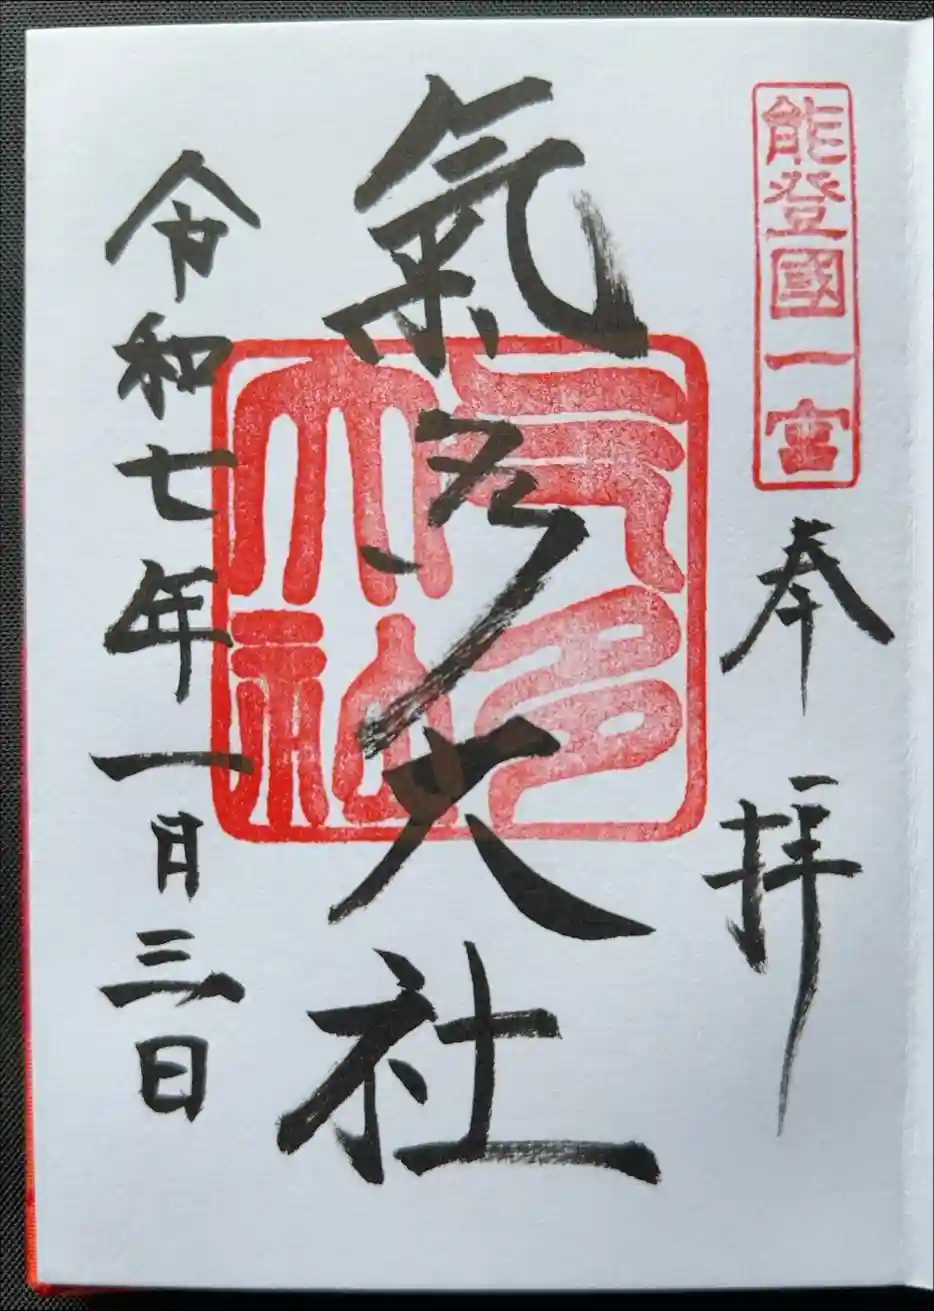 能登國一宮
奉拝
氣多大社
气多大社
令和七年一月三日